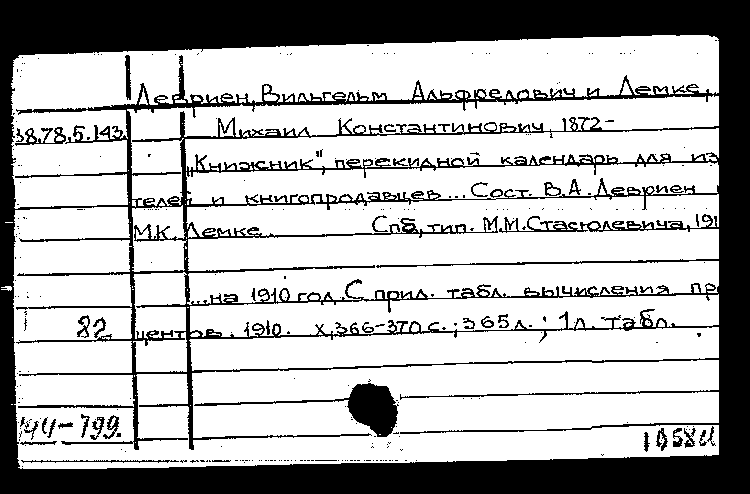 Девриен, Вильгельм Альфредович и Лемке,
38.78.5.143. Михаил Константинович, 1872-
"Книжник", перекидной календарь для из
телей и книгопродавцев... Сост. В.А. Девриен
М.К. Лемке. Спб, тип. М.М. Стасюлевича, 191
...на 1910 год. С прил. табл. вычисления про
82 центов. 1910. X, 366-370 с.; 365 л.; 1 л. табл.
144-799.